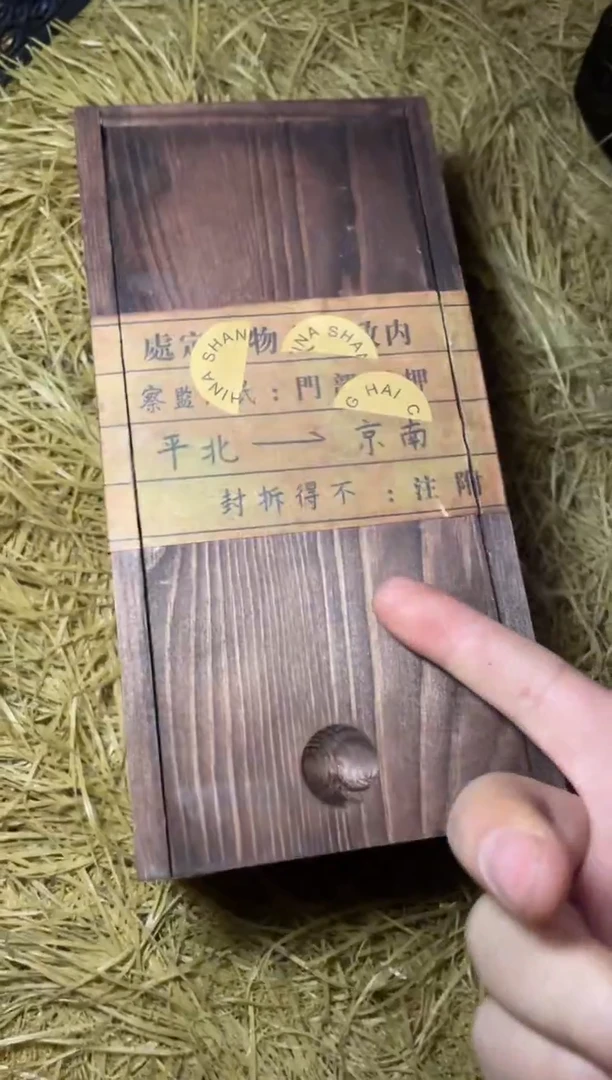 內政 物 定處
押 部門： 監察
南京 → 北平
附注：不得拆封
HINA SHAN
INA SHAN
G HAI C